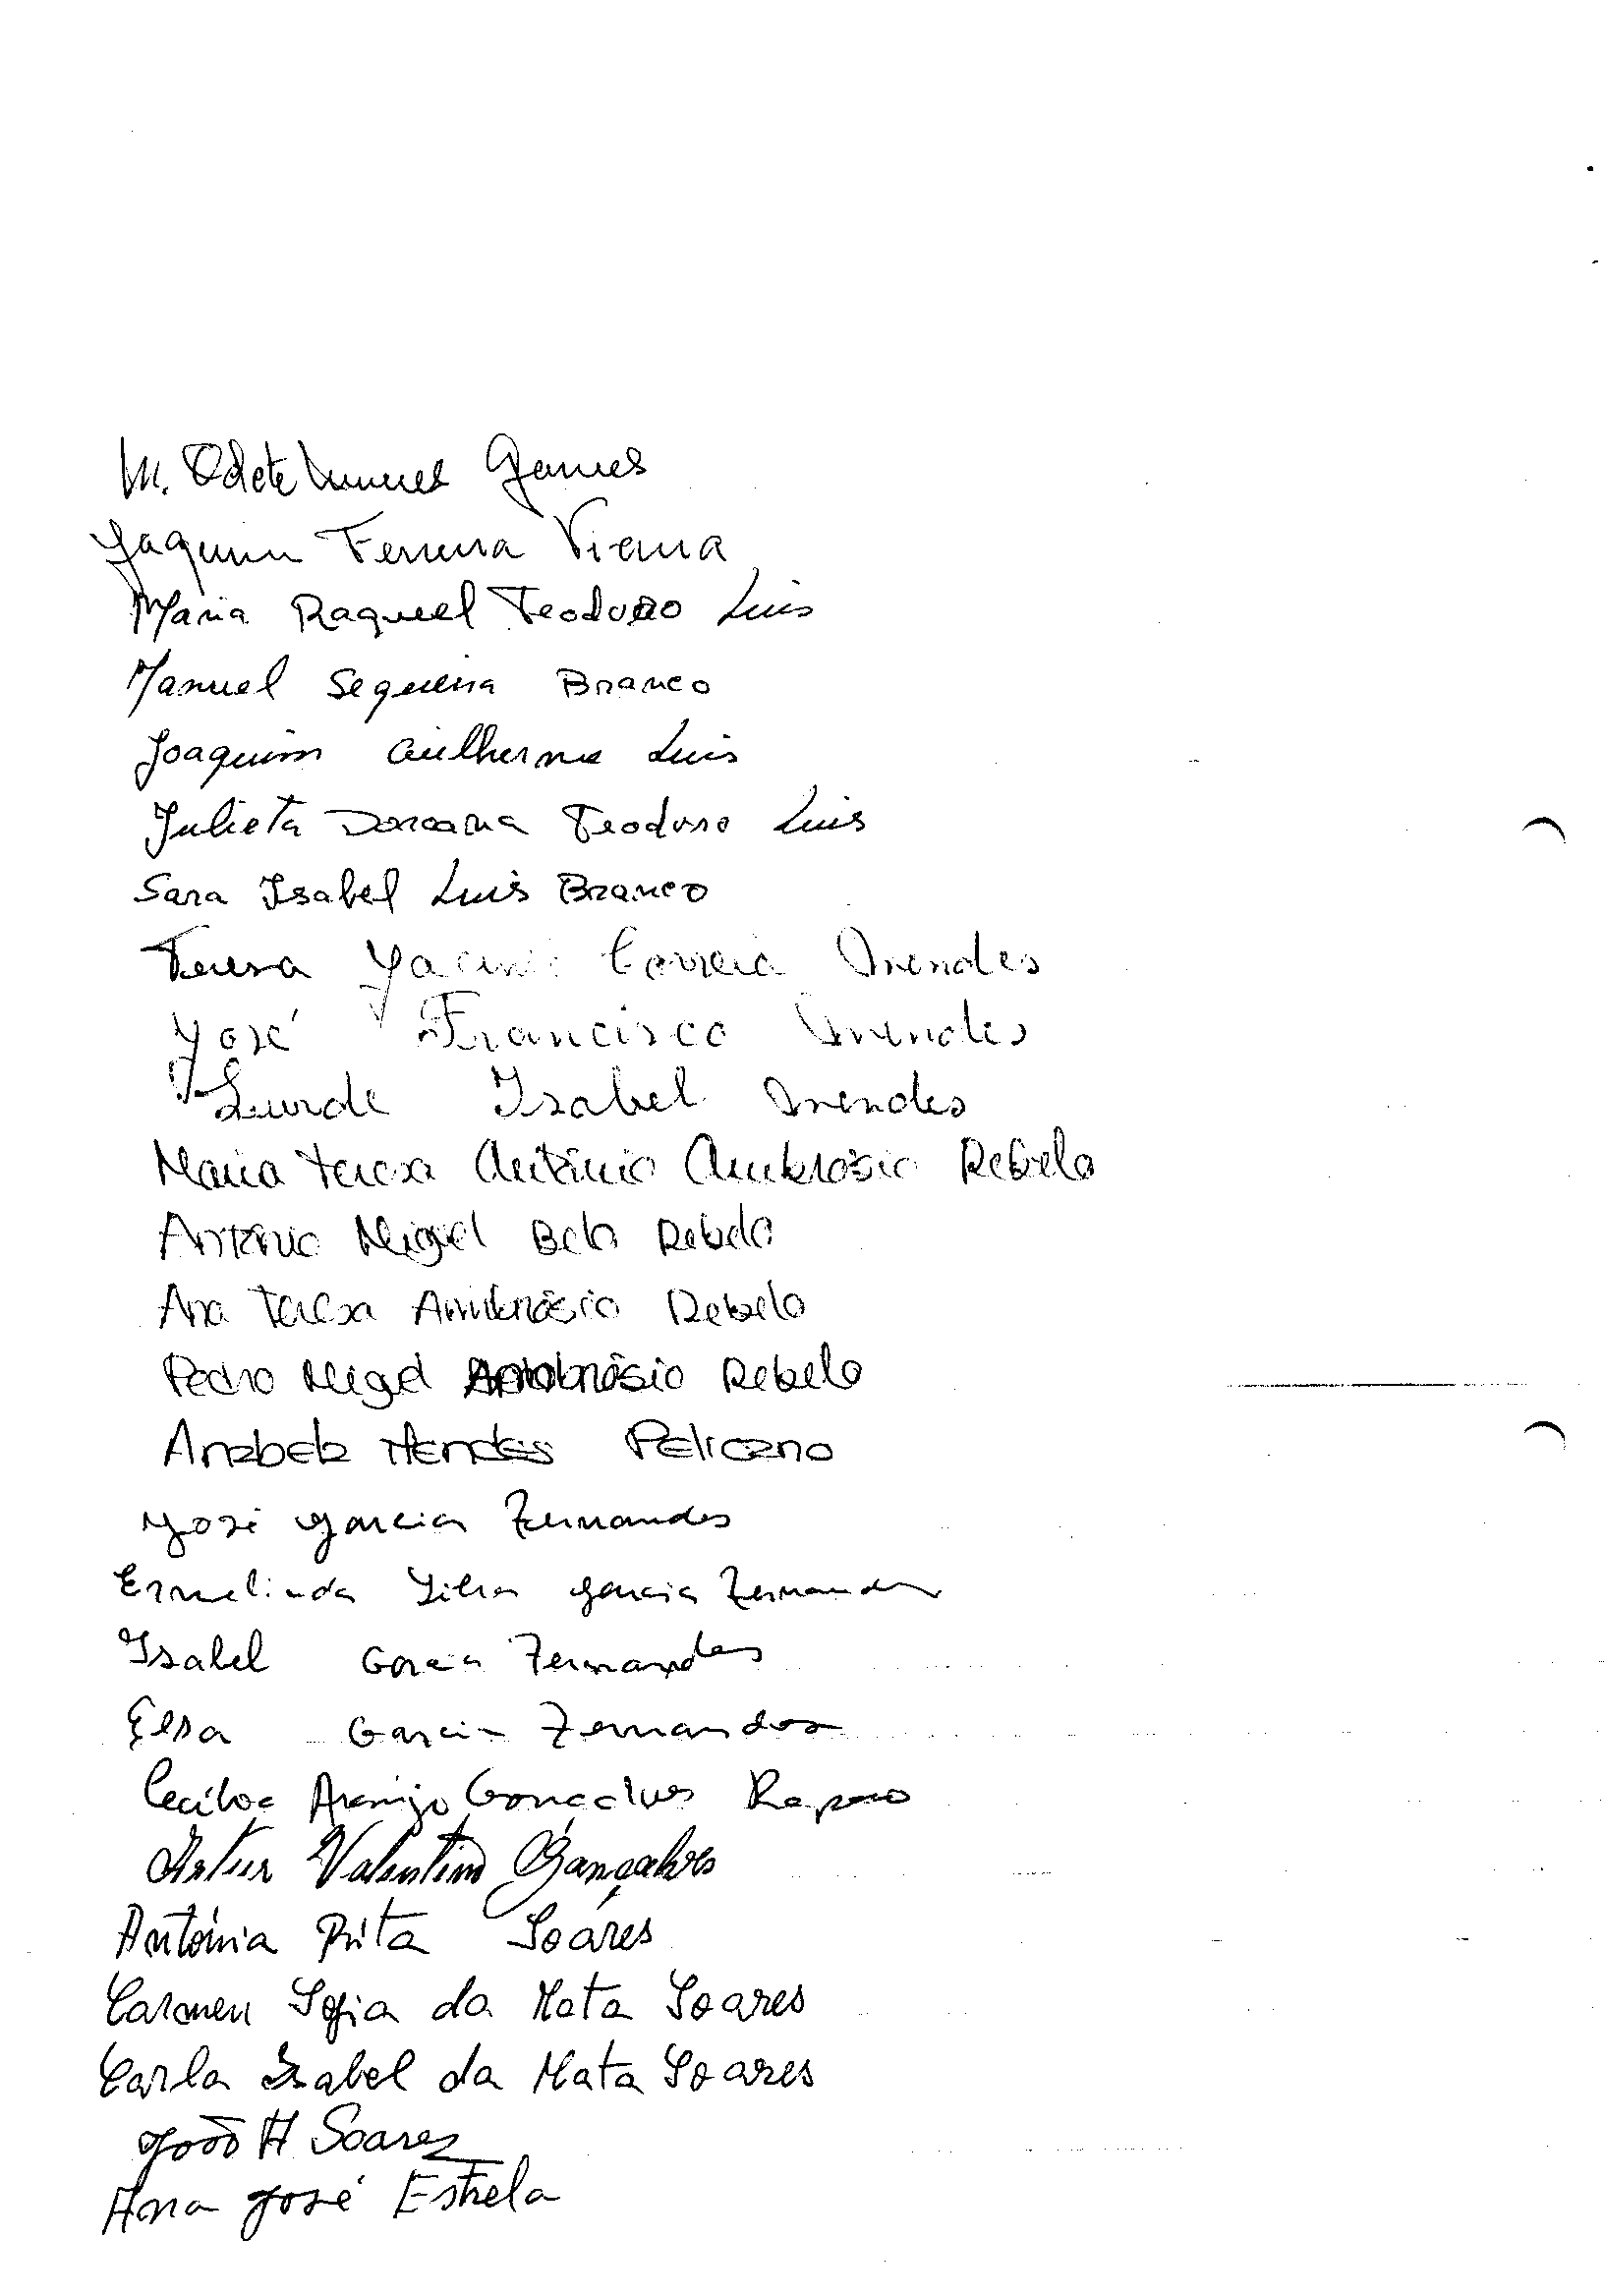 M. Odete Nunes Gomes
Joaquim Ferreira Viana
Maria Raquel Teodoro Luis
Manuel Sequeira Branco
Joaquim Guilherme Luis
Julieta Teodoro Luis
Sara Isabel Luis Branco
Teresa Correia Mendes
José Francisco Mendes
Lurde Isabel Mendes
Maria Teresa António Ambrósio Rebelo
António Miguel Belo Rebelo
Ana Teresa Ambrósio Rebelo
Pedro Migel Ambrósio Rebelo
Anabela Mendes Pelicano
José Garcia Fernandes
Ermelinda Garcia Fernandes
Isabel Garcia Fernandes
Elsa Garcia Fernandes
Araújo Gonçalves Raposo
Artur Valentim Gonçalves
Antónia Rita Soáres
Carmen Sofia da Mata Soares
Carla Isabel da Mata Soares
João H Soares
Ana José Estrela